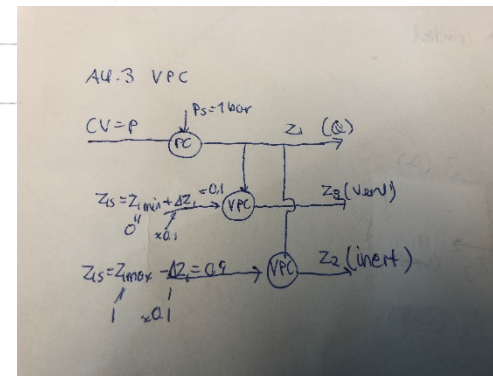 A4.3 VPC
Ps=1bar
CV=P PC Z1 (Q)
Z1s=Z1min+ΔZ1=0.1 VPC Z3(vent)
0 ≈0.1
Z1s=Z1max-ΔZ1=0.9 VPC Z2(inert)
1 ≈0.1